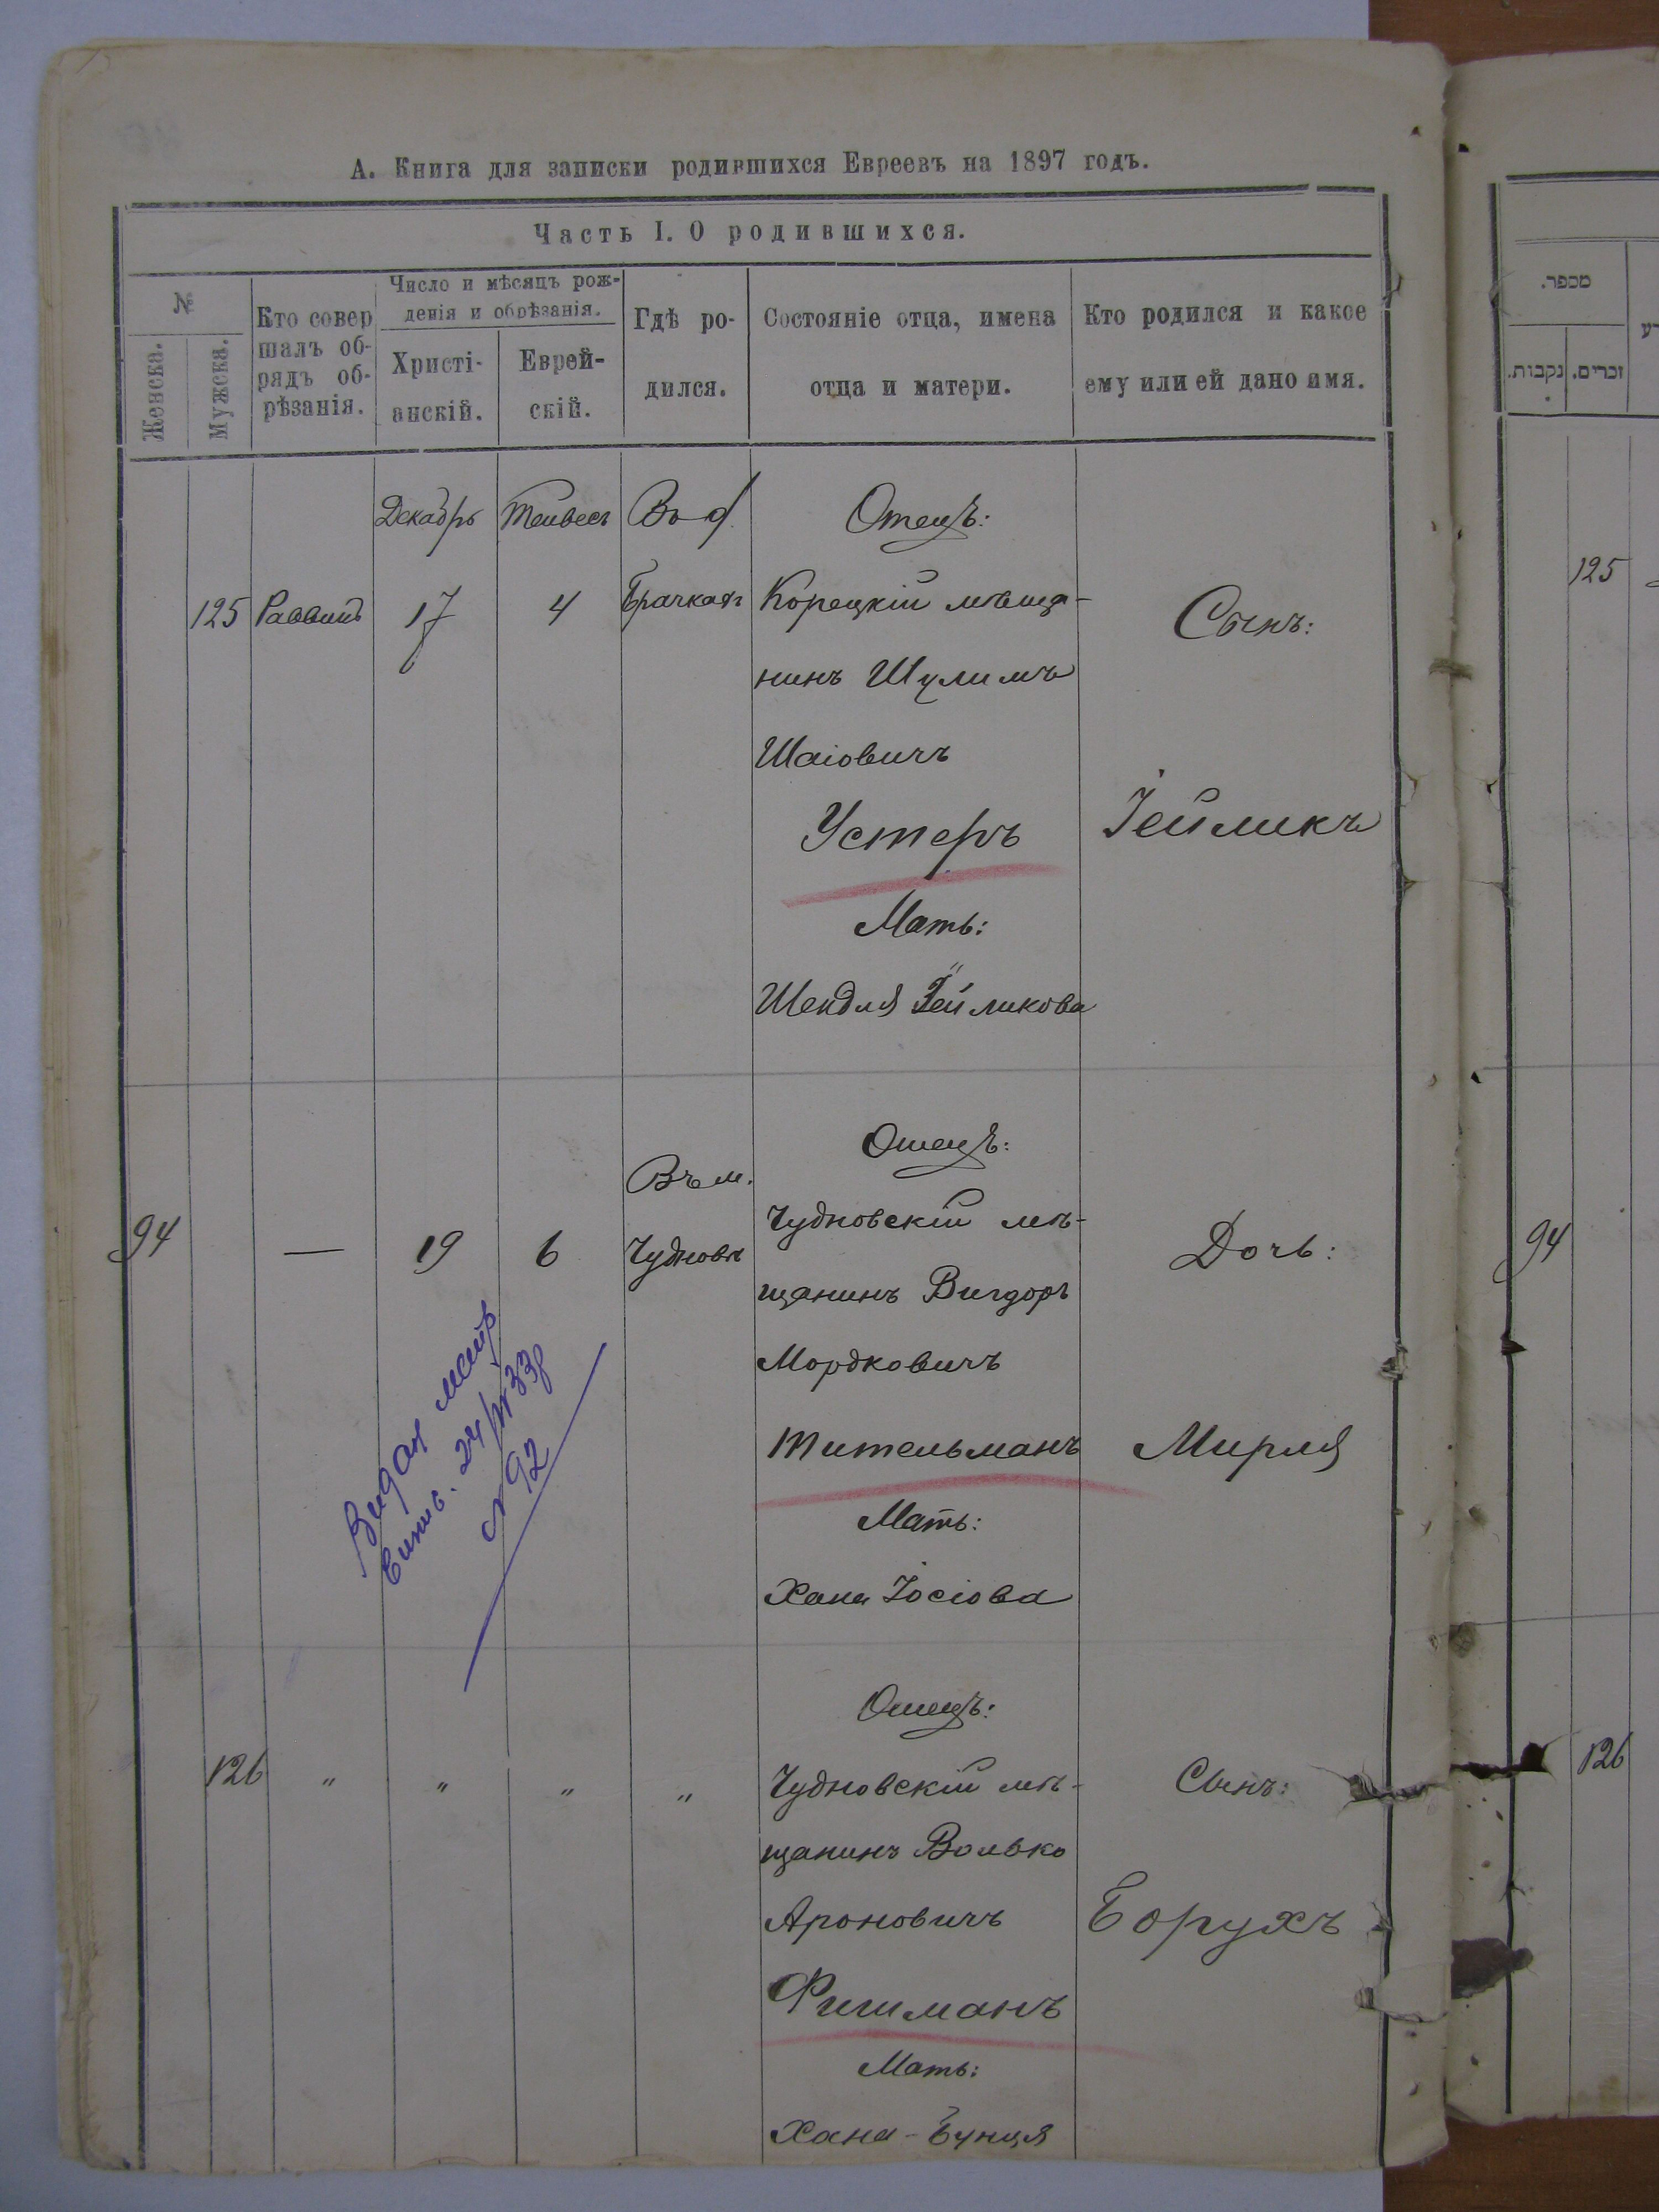 А. Книга для записки родившихся Евреевъ на 1897 годъ.
Часть I. О родившихся.
№
Женска.
Мужска.
Кто совер
шалъ об-
рядъ об-
рѣзанія.
Число и мѣсяцъ рож-
денія и обрѣзанія.
Христі-
анскій.
Еврей-
скій.
Гдѣ ро-
дился.
Состояніе отца, имена
отца и матери.
Кто родился и какое
ему или ей дано имя.
125
Раввинъ
Декабрь
17
4
Въ
Отецъ:
Корецкій мѣща-
нинъ Шулимъ
Шаіовичъ
Устеръ
Мать:
Шендля Іейликова
Сынъ:
Іейликъ
94
—
19
6
Въ м.
Чудновѣ
Отецъ:
Чудновскій мѣ-
щанинъ Вигдоръ
Мордковичъ
Тительманъ
Мать:
Хана Іосіова
Дочь:
Мирля
24/IV 33р
№92
126
"
"
"
"
Отецъ:
Чудновскій мѣ-
щанинъ Волько
Ароновичъ
Фишманъ
Мать:
Хана-Бунця
Сынъ:
Борухъ
מספר.
נקבות.
זכרים.
125
94
126